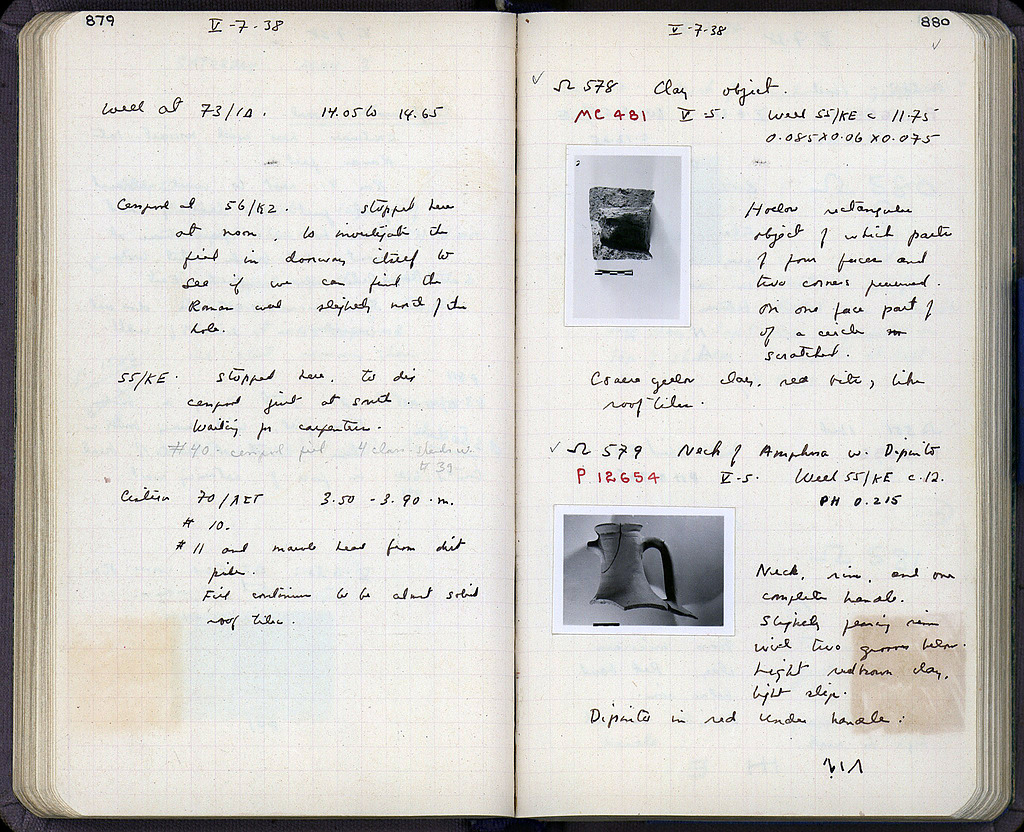 879
V-7-38
Well at 73/ΙΔ. 14.05 to 14.65
Cesspool at 56/ΚΖ. stopped here
at noon, to investigate the
fill in doorway itself to
see if we can find the
Roman well slightly north of the
hole.
55/ΚΕ. stopped here, to dig
cesspool just at south.
Waiting for carpenters.
#40 - cesspool fill 4 class. sherds w.
#39
Cistern 70/ 3.50 - 3.90 m.
# 10.
# 11 and marble head from dirt
pile.
Fill continues to be almost solid
roof tiles.
880
V-7-38
✓
✓ Ω 578 Clay object.
MC 481 V-5. Well 55/ΚΕ c 11.75
0.085X0.06X0.075
Hollow rectangular
object of which parts
of four faces and
two corners preserved.
On one face part of
of a circle
scratched.
Coarse yellow clay, red bits, like
roof tiles.
✓ Ω 579 Neck of Amphora w. Dipinto
P 12654 V-5. Well 55/ΚΕ c.12.
PH 0.215
Neck, rim, and one
complete handle.
Slightly flaring rim
with two grooves below.
Light redbrown clay,
light slip.
Dipinto in red under handle: